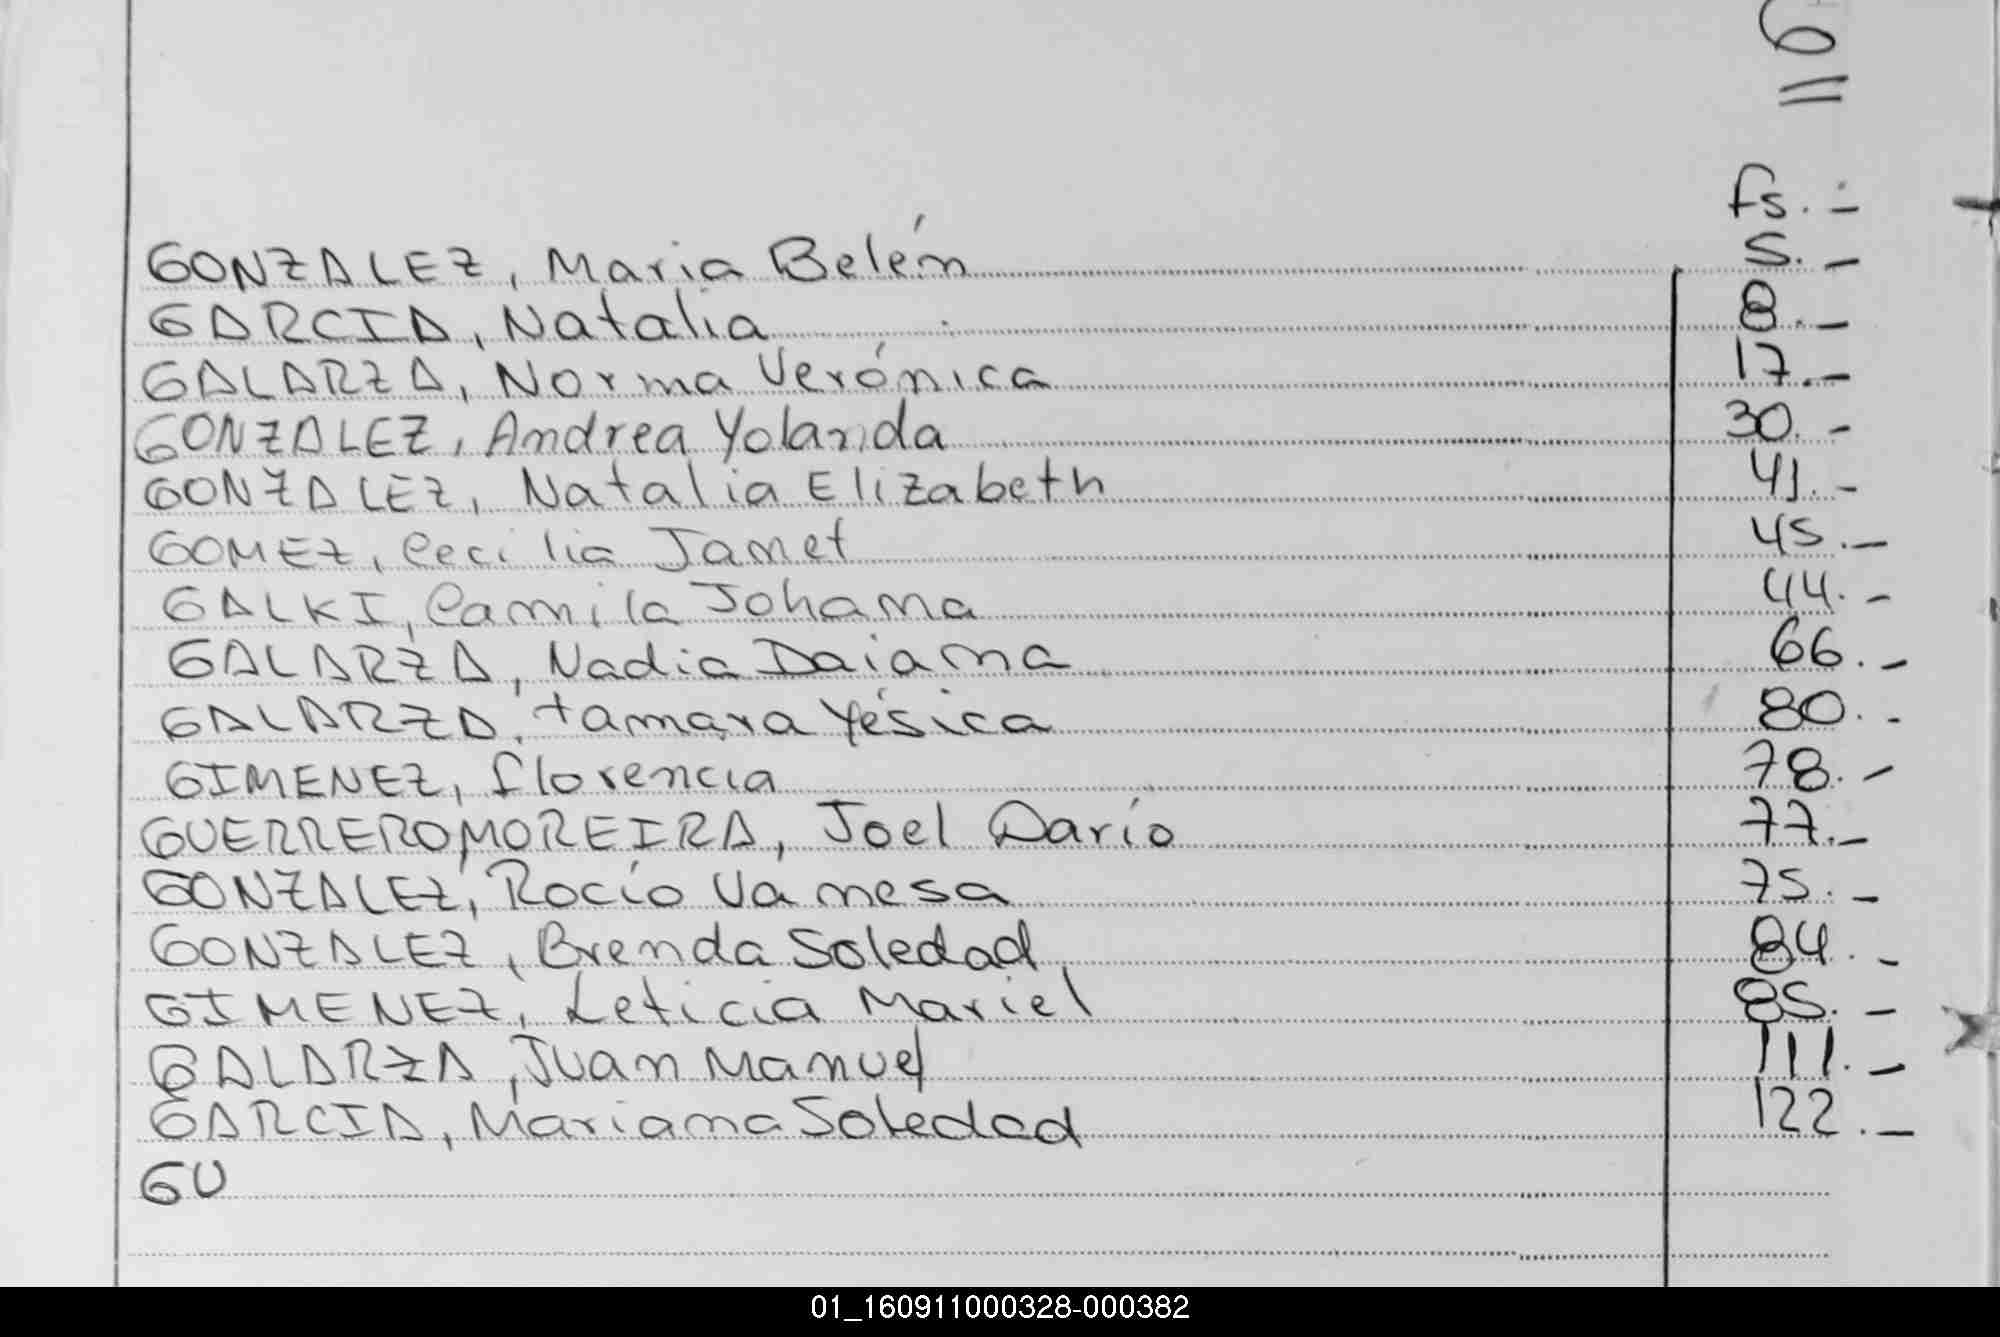 G
fs.-
GONZALEZ, Maria Belén 5.-
GARCIA, Natalia 8.-
GALARZA, Norma Verónica 17.-
GONZALEZ, Andrea Yolanda 30.-
GONZALEZ, Natalia Elizabeth 41.-
GOMEZ, Cecilia Janet 45.-
GALKI, Camila Johana 44.-
GALARZA, Nadia Daiana 66.-
GALARZA, tamara Yésica 80.-
GIMENEZ, florencia 78.-
GUERRERO MOREIRA, Joel Darío 77.-
GONZALEZ, Rocío Vanesa 75.-
GONZALEZ, Brenda Soledad 84.-
GIMENEZ, Leticia Mariel 85.-
GALARZA, Juan Manuel 111.-
GARCIA, Mariana Soledad 122.-
GU
01_160911000328-000382